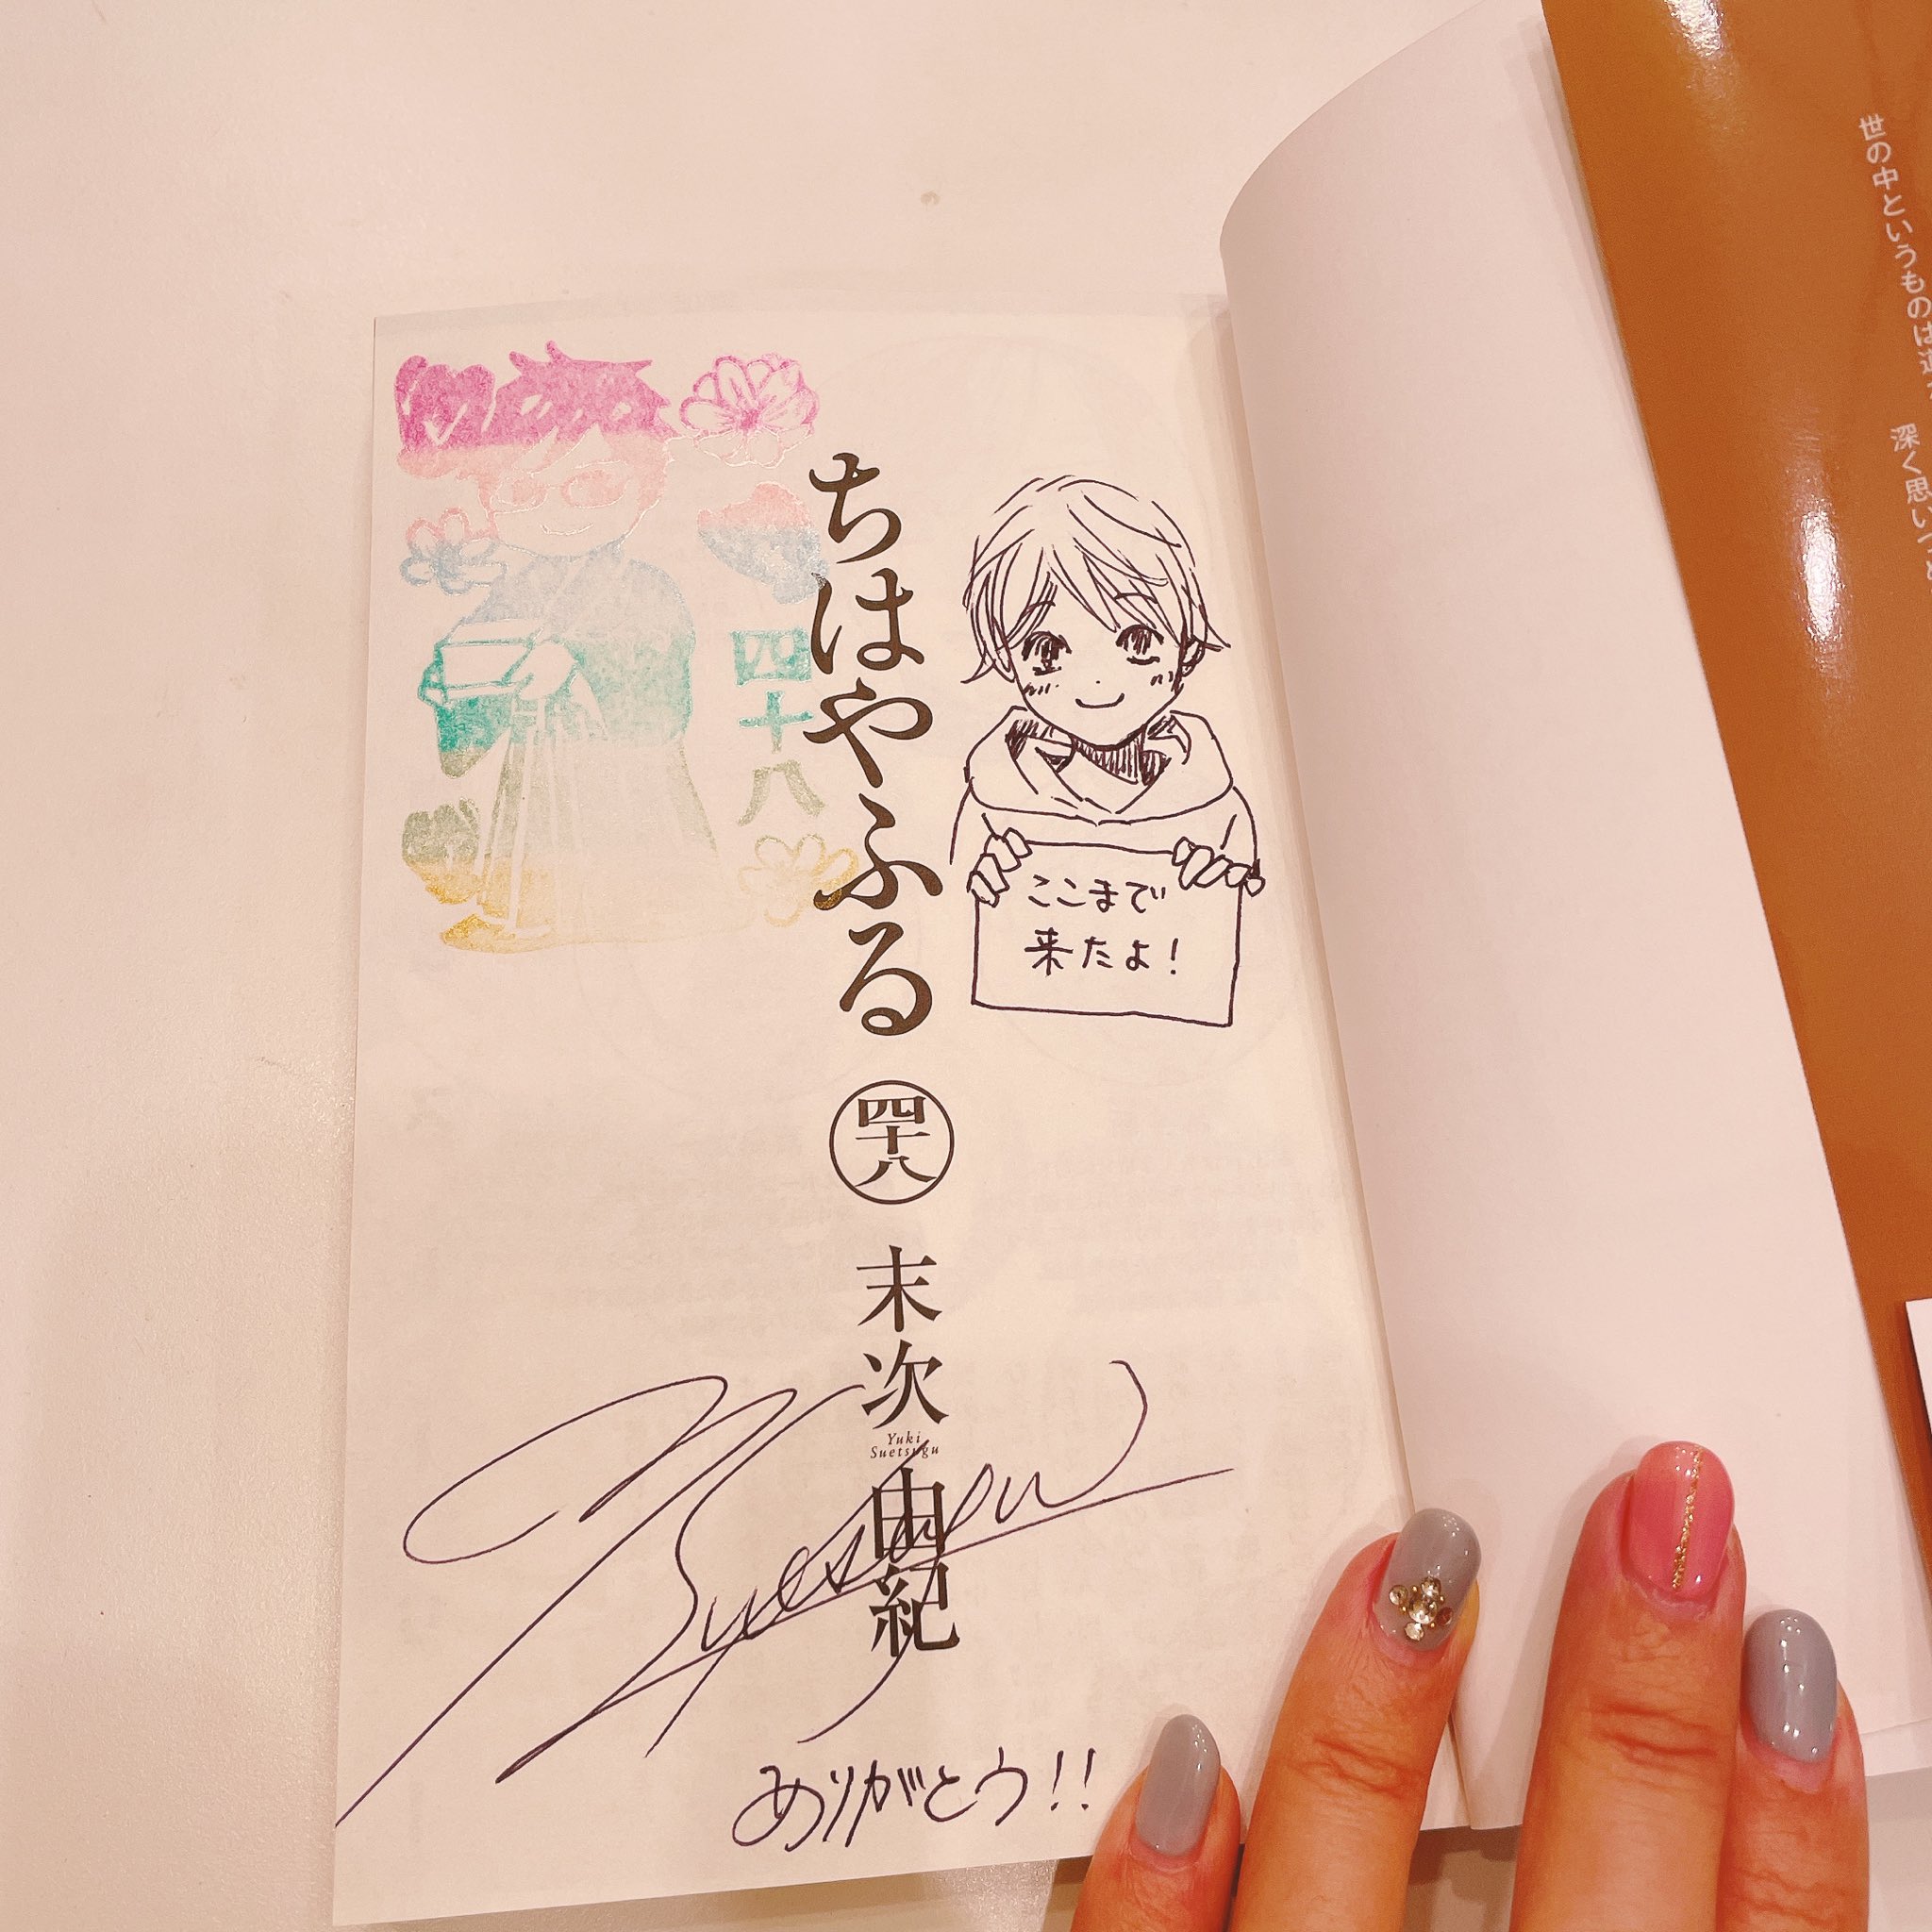 ちはやふる
四十八
末次由紀
Yuki
Suetsugu
四十八
ここまで
来たよ!
ありがとう!!
世の中というものは
深く思いつ